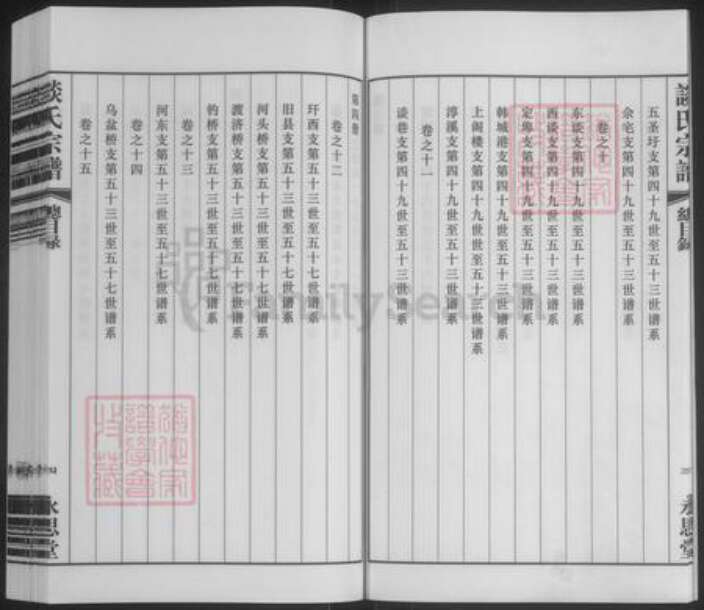 談氏宗譜
總目録
永思堂
五圣圩支第四十九世至五十三世谱系
佘宅支第四十九世至五十三世谱系
卷之十
东谈支第四十九世至五十三世谱系
西谈支第四十九世至五十三世谱系
定埠支第四十九世至五十三世谱系
韩城港支第四十九世至五十三世谱系
上阁楼支第四十九世至五十三世谱系
淳溪支第四十九世至五十三世谱系
卷之十一
谈巷支第四十九世至五十三世谱系
第四册
卷之十二
圩西支第五十三世至五十七世谱系
旧县支第五十三世至五十七世谱系
河头桥支第五十三世至五十七世谱系
渡济桥支第五十三世至五十七世谱系
钓桥支第五十三世至五十七世谱系
卷之十三
河东支第五十三世至五十七世谱系
卷之十四
乌盆桥支第五十三世至五十七世谱系
卷之十五
談氏宗譜
總目録
永思堂
FamilySearch